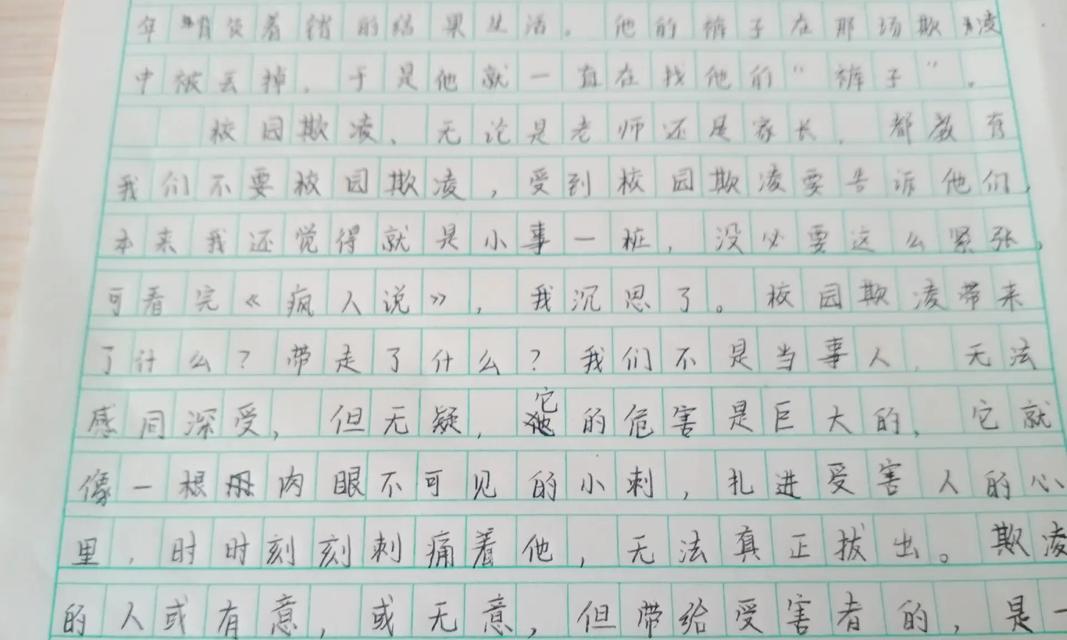 年背负着错的结果生活。他的裤子在那场欺凌
中被丢掉，于是他就一直在找他的“裤子”。
校园欺凌、无论是老师还是家长，都教育
我们不要校园欺凌，受到校园欺凌要告诉他们，
本来我还觉得就是小事一桩，没必要这么紧张，
可看完《疯人说》，我沉思了。校园欺凌带来
了什么？带走了什么？我们不是当事人，无法
感同深受，但无疑，它的危害是巨大的，它就
像一根肉眼不可见的小刺，扎进受害人的心
里，时时刻刻刺痛着他，无法真正拔出。欺凌
的人或有意，或无意，但带给受害者的，是一